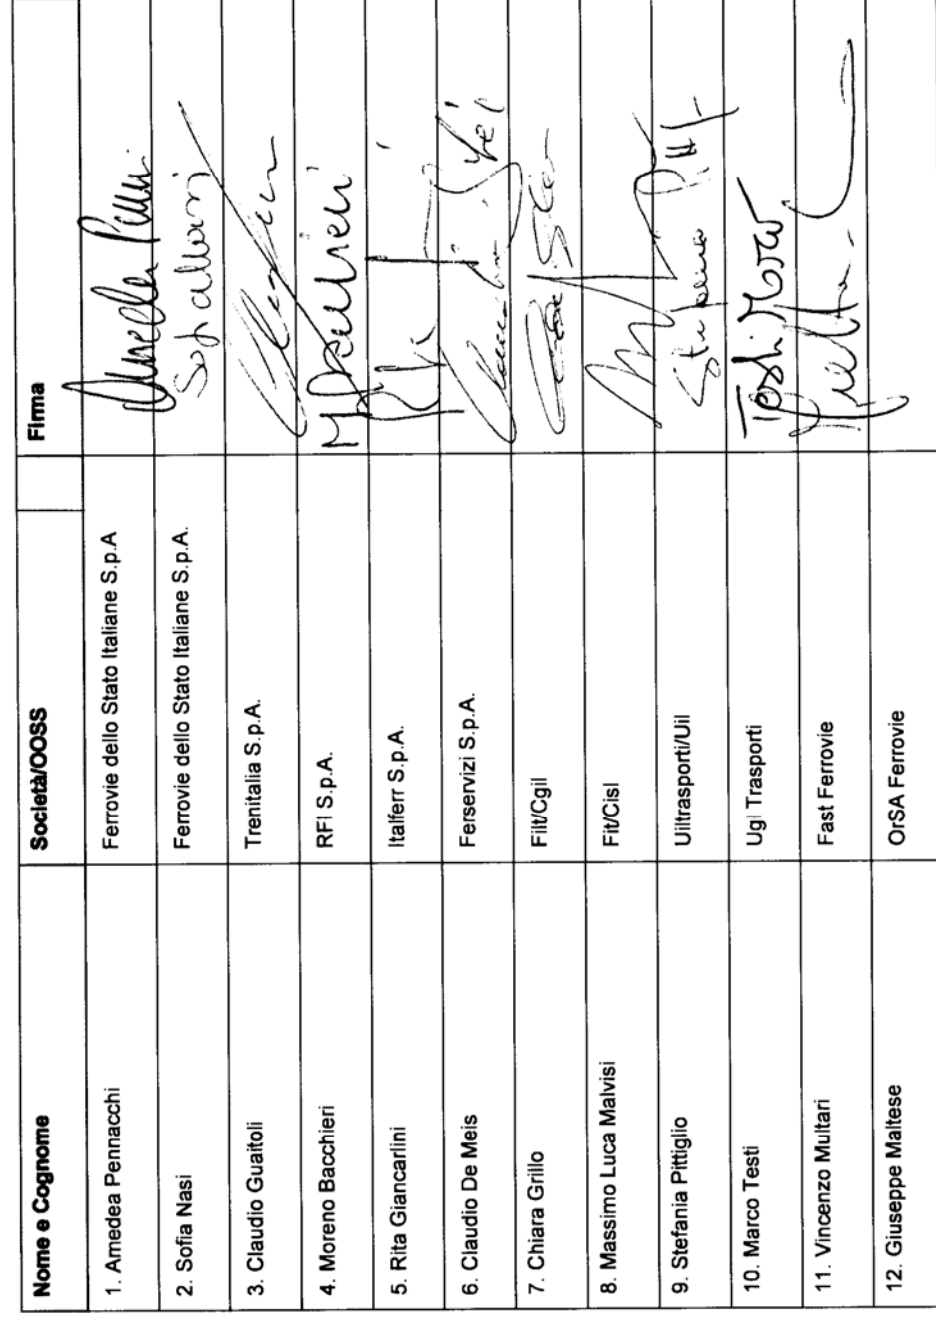 Nome e Cognome Società/OOSS Firma
1. Amedea Pennacchi Ferrovie dello Stato Italiane S.p.A
2. Sofia Nasi Ferrovie dello Stato Italiane S.p.A.
3. Claudio Guaitoli Trenitalia S.p.A.
4. Moreno Bacchieri RFI S.p.A.
5. Rita Giancarlini Italferr S.p.A.
6. Claudio De Meis Ferservizi S.p.A.
7. Chiara Grillo Filt/Cgil
8. Massimo Luca Malvisi Fit/Cisl
9. Stefania Pittiglio Uiltrasporti/Uil
10. Marco Testi Ugl Trasporti
11. Vincenzo Multari Fast Ferrovie
12. Giuseppe Maltese OrSA Ferrovie